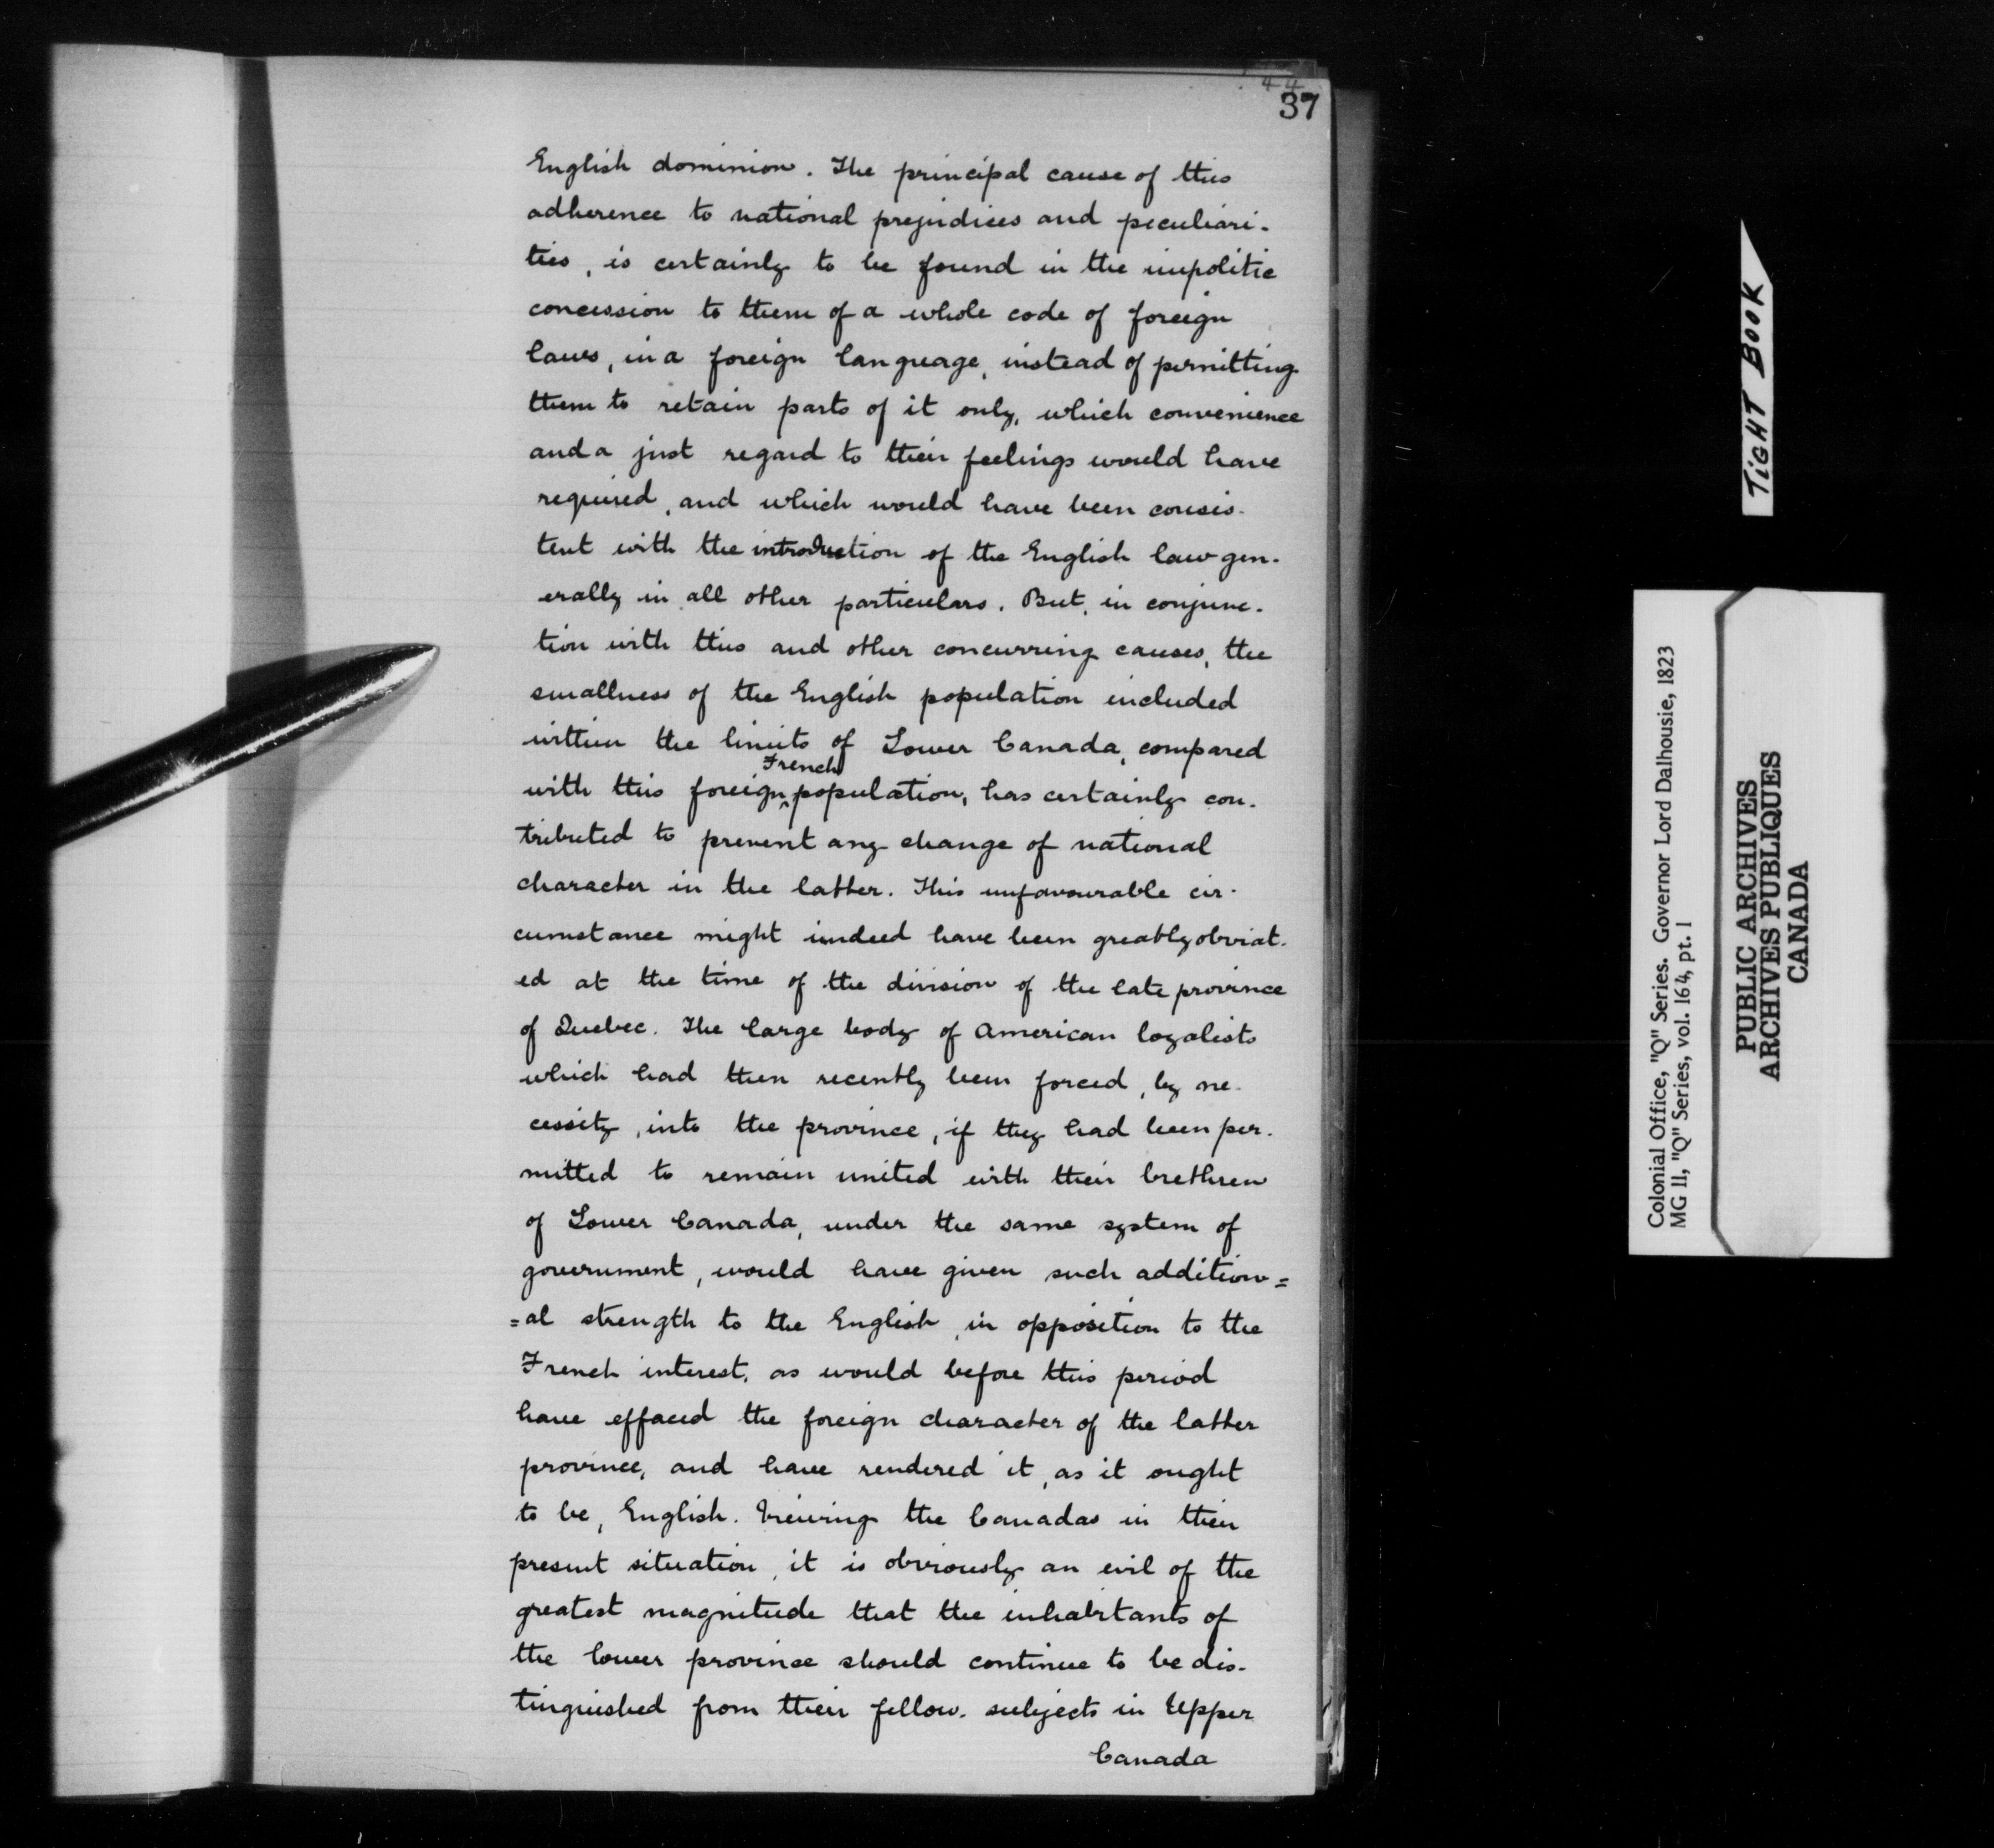 44
37
English dominion. The principal cause of this
adherence to national prejudices and peculiari-
ties, is certainly to be found in the impolitic
concession to them of a whole code of foreign
laws, in a foreign language, instead of permitting
them to retain parts of it only, which convenience
and a just regard to their feelings would have
required, and which would have been consis-
tent with the introduction of the English law gen-
erally in all other particulars. But, in conjunc-
tion with this and other concurring causes, the
smallness of the English population included
within the limits of Lower Canada, compared
French
with this foreign ^ population, has certainly con-
tributed to prevent any change of national
character in the latter. This unfavourable cir-
cumstance might indeed have been greatly obviat-
ed at the time of the division of the late province
of Quebec. The large body of American loyalists
which had then recently been forced, by ne-
cessity, into the province, if they had been per-
mitted to remain united with their brethren
of Lower Canada, under the same system of
government, would have given such addition=
=al strength to the English, in opposition to the
French interest, as would before this period
have effaced the foreign character of the latter
province, and have rendered it, as it ought
to be, English. Viewing the Canadas in their
present situation, it is obviously an evil of the
greatest magnitude that the inhabitants of
the lower province should continue to be dis-
tinguished from their fellow-subjects in Upper
Canada
TIGHT BOOK
Colonial Office, "Q" Series. Governor Lord Dalhousie, 1823
MG 11, "Q" Series, vol. 164, pt. 1
PUBLIC ARCHIVES
ARCHIVES PUBLIQUES
CANADA